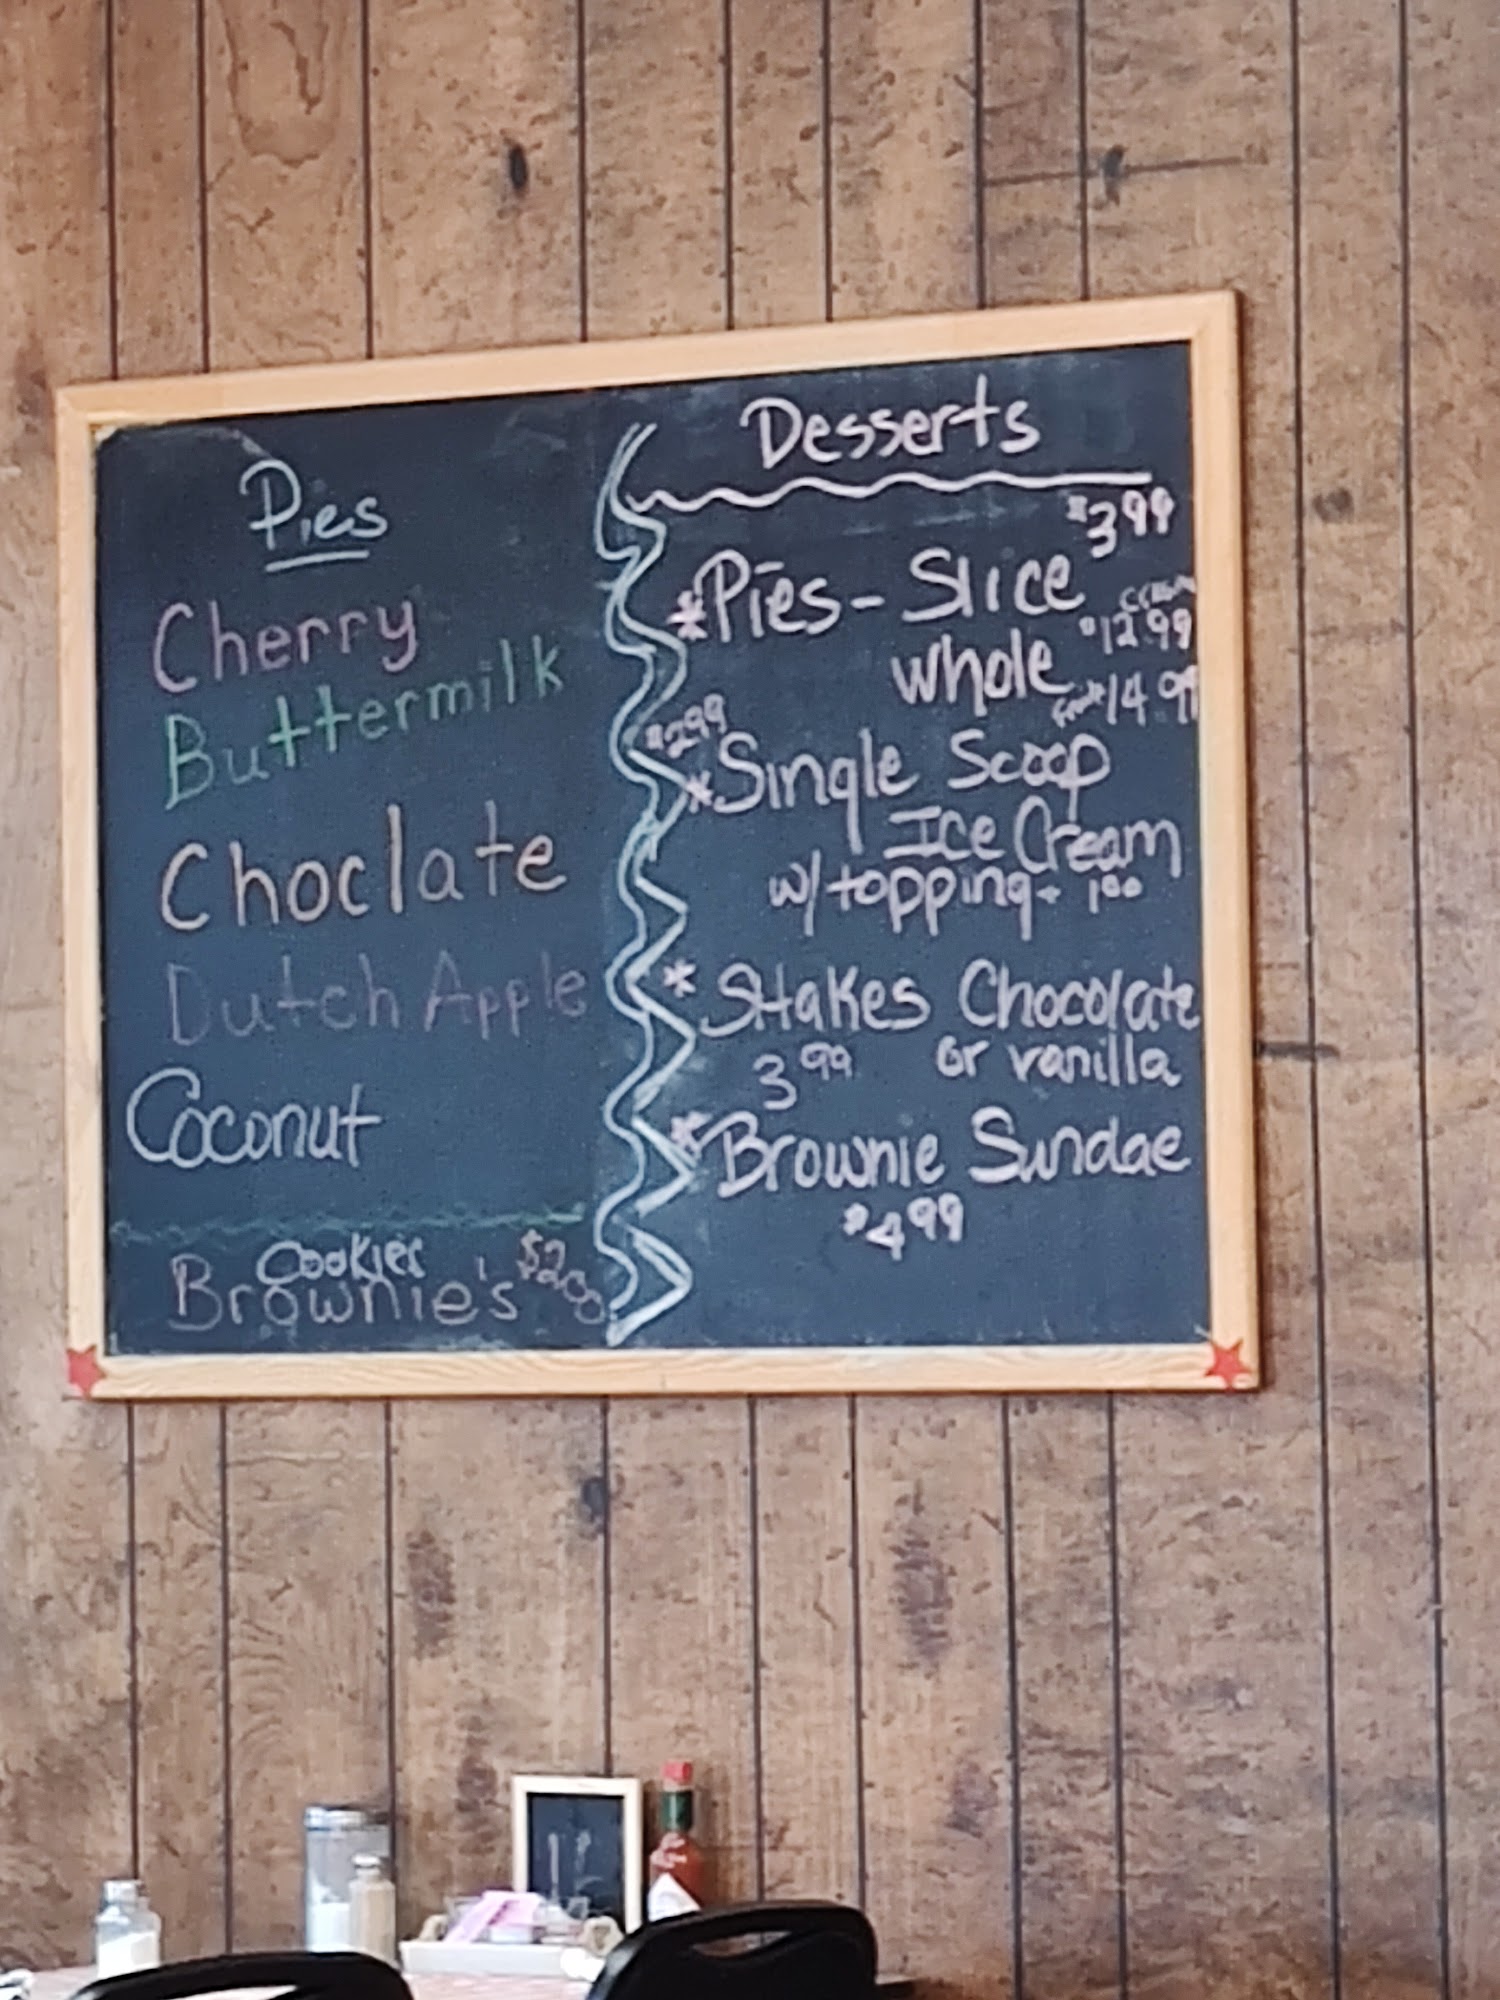 Pies
Cherry
Buttermilk
Choclate
Dutch Apple
Coconut
Cookies
Brownie's $2.00
Desserts
$3.99
*Pies - Slice
cream
$12.99
whole
fruit $14.99
$2.99
*Single Scoop
Ice Cream
w/ topping + 1.00
* SHakes Chocolate
3.99 or vanilla
*Brownie Sundae
$4.99